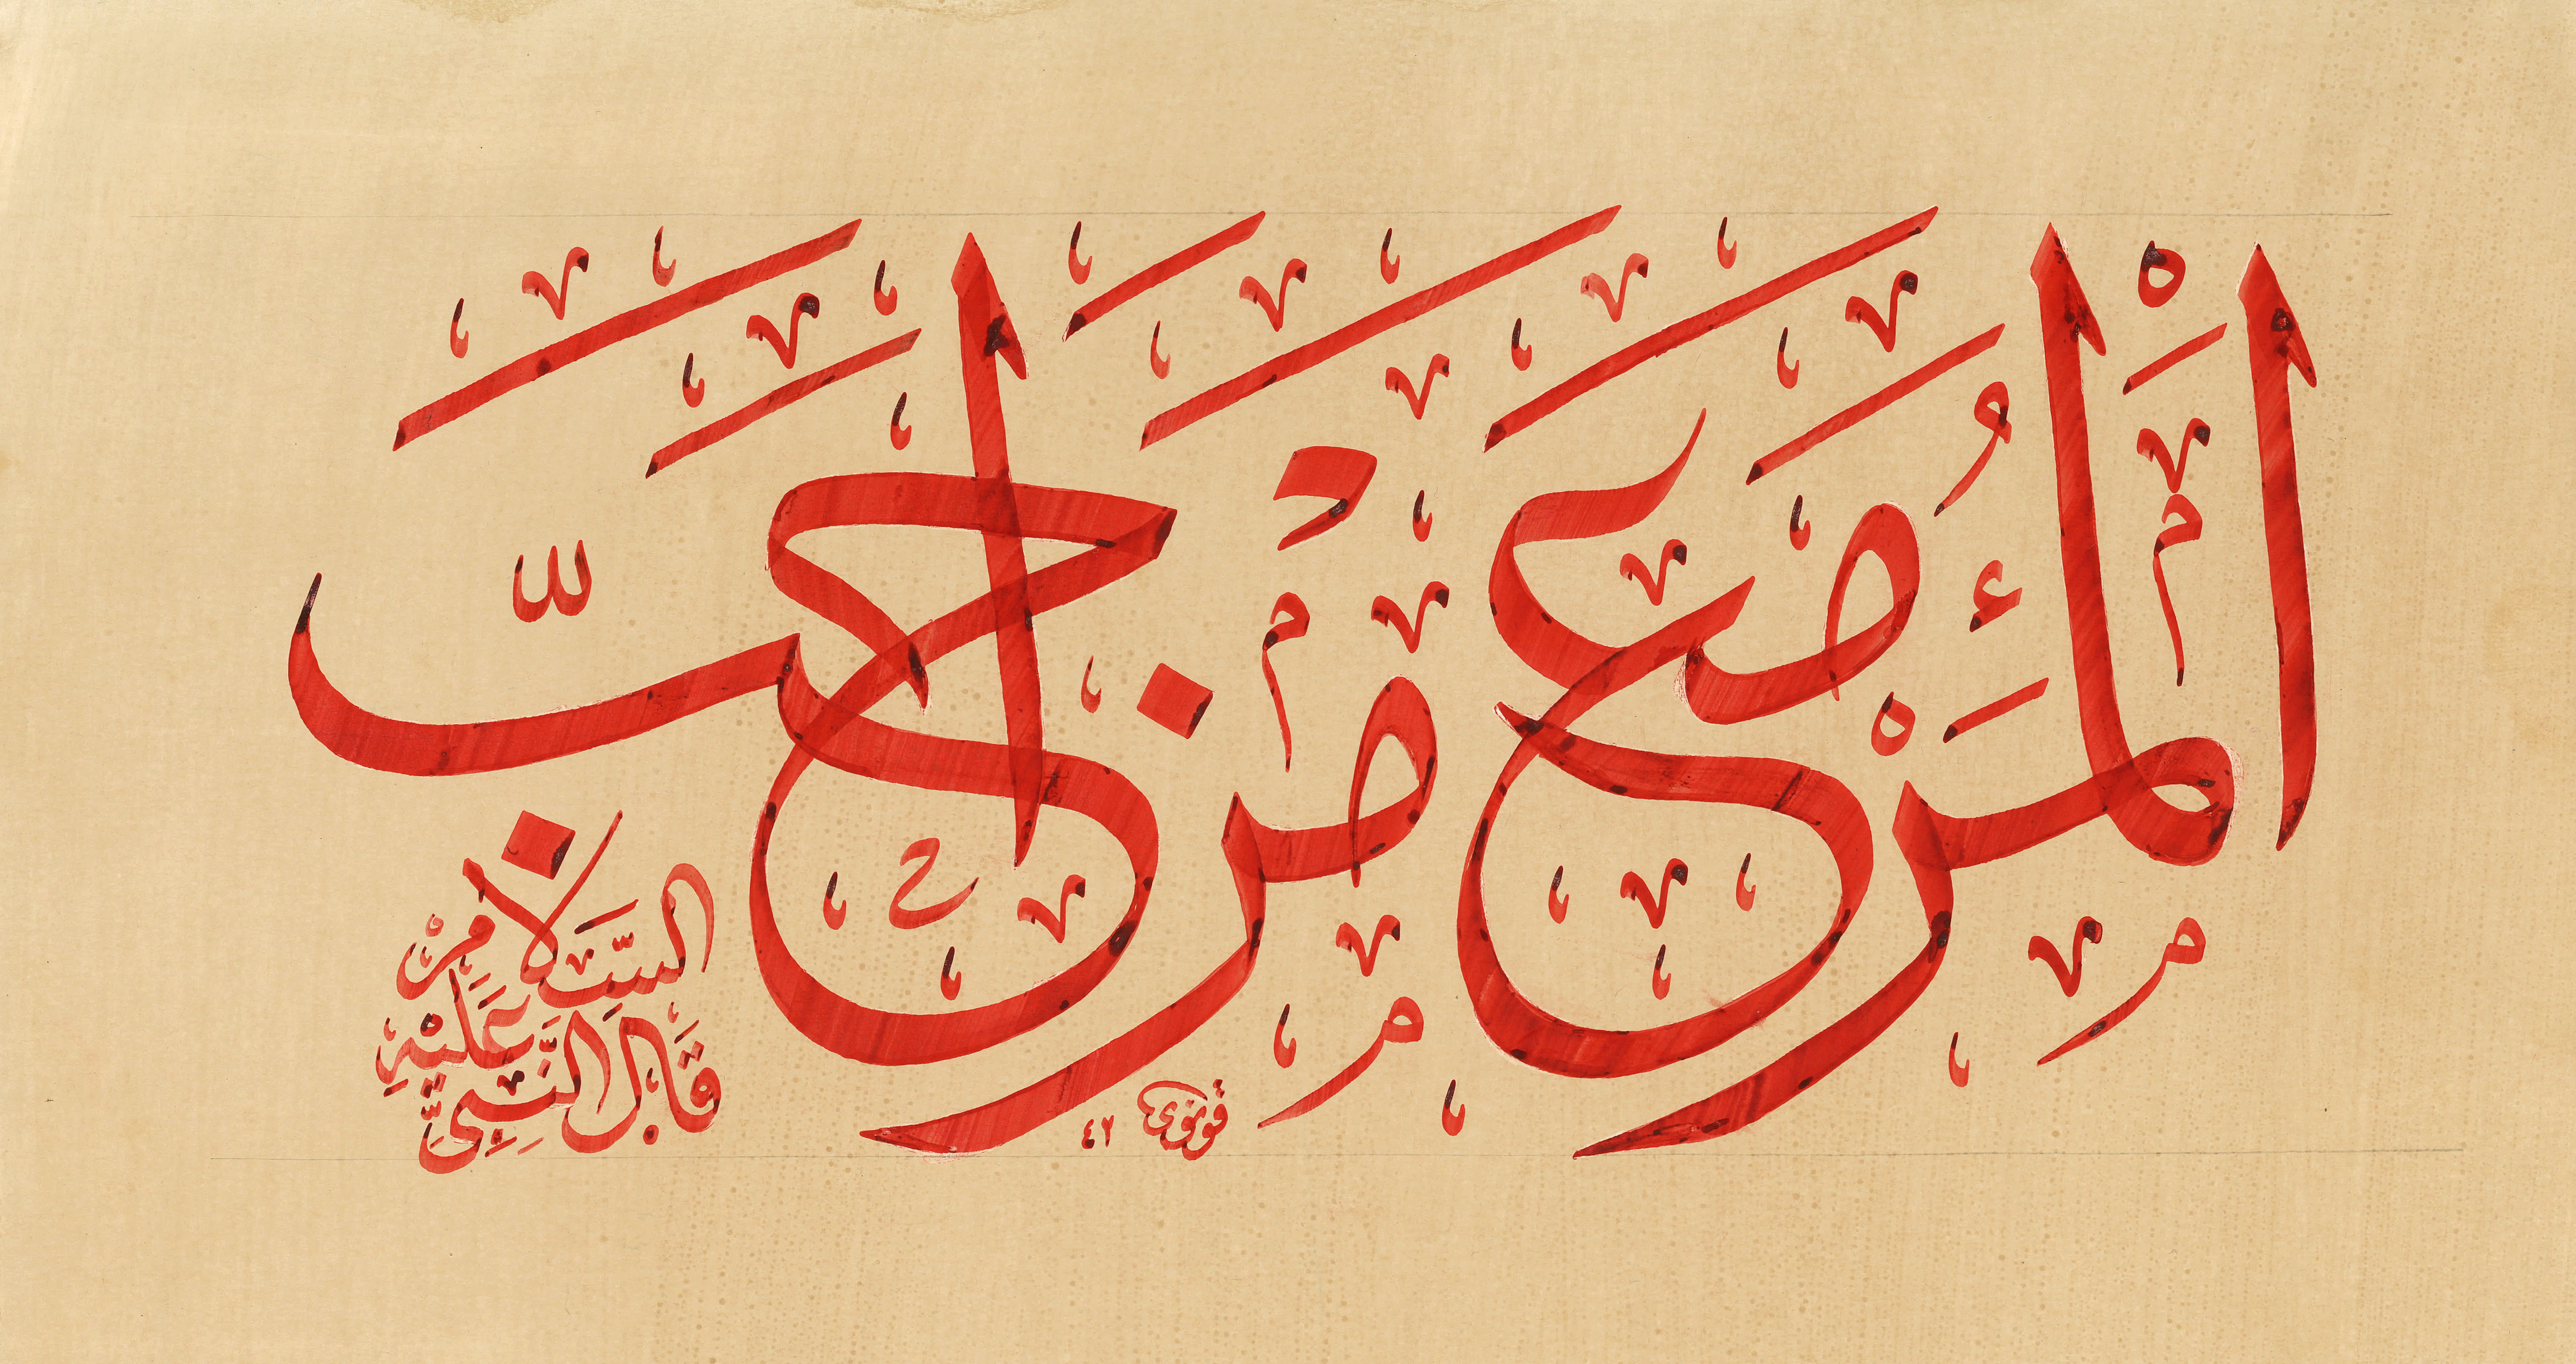 اَلْمَرْءُ مَعَ مَنْ اَحَبَّ
قَالَ النَّبِىُّ
عَلَيْهِ
السَّلَامُ
قونوى ٤٢